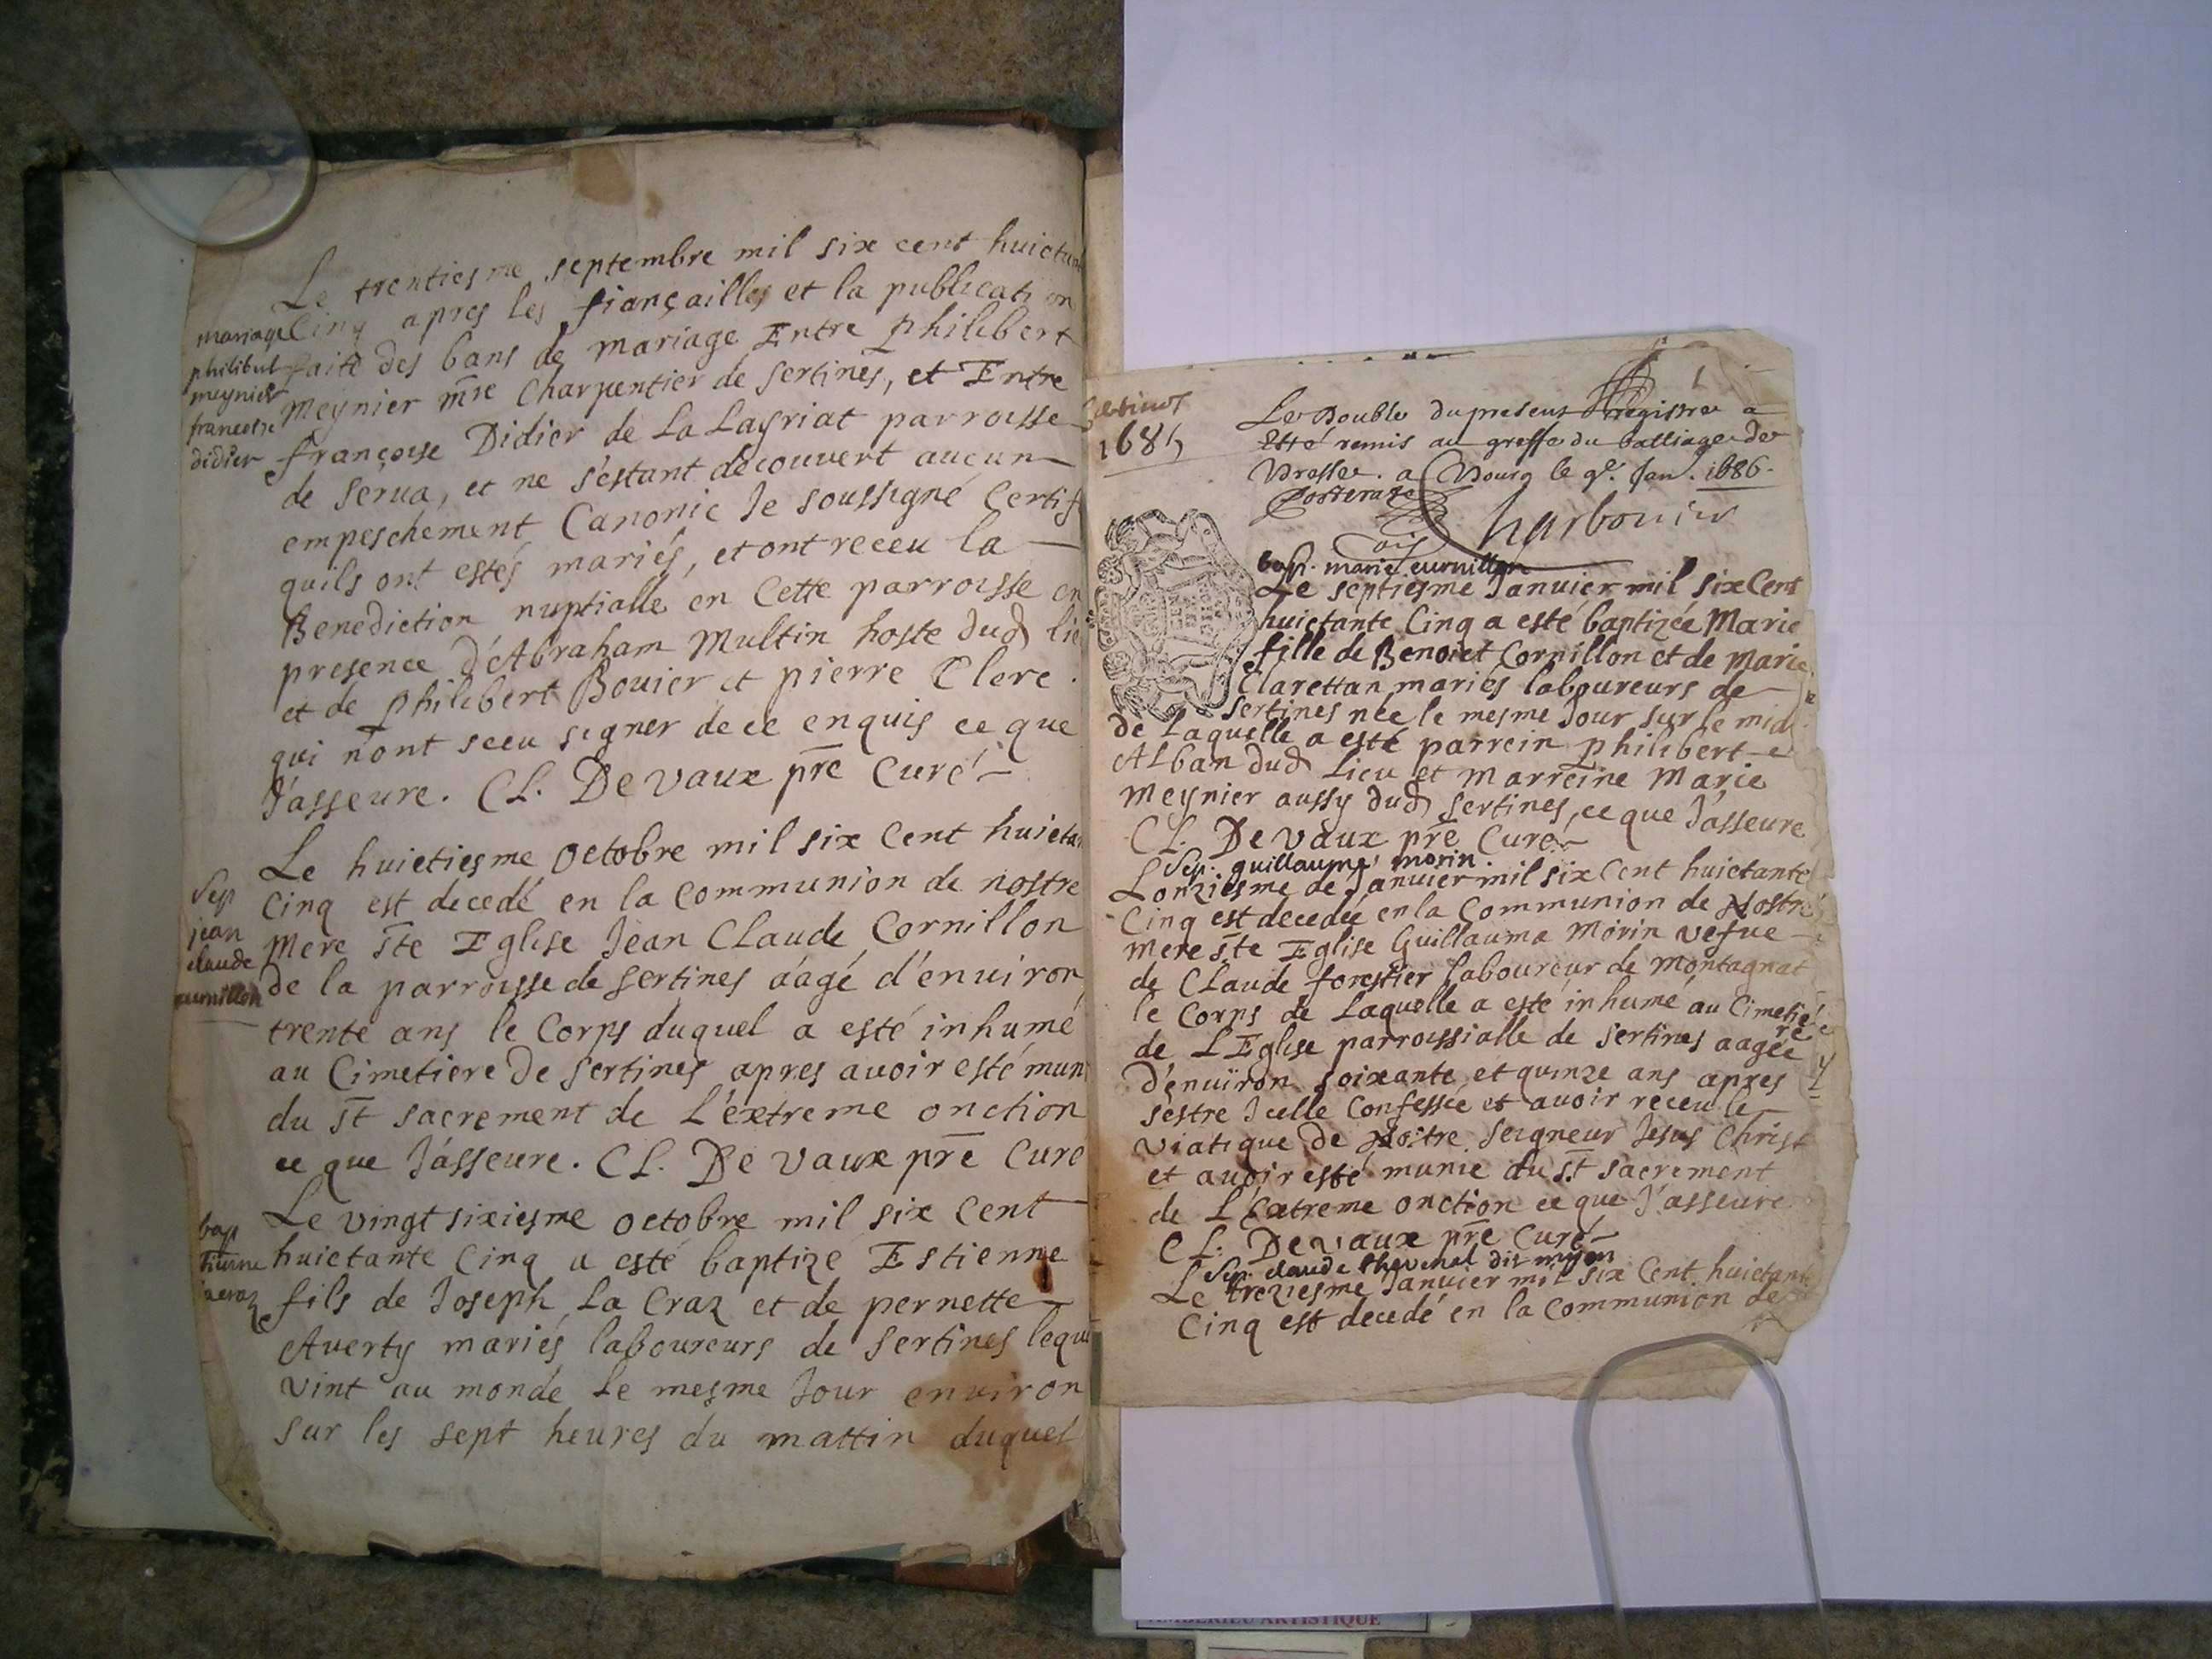 Le trentiesme septembre mil six cent huictan
Cinq apres les fiançailles et la publication
faite des bans de mariage Entre philibert
Meynier mre Charpentier de sertines, et Entre
françoise Didier de La Layriat parroisse
de serua, et ne s'estant decouvert aucun
empeschement Canonic Je soussigné Certif
quils ont estés mariés, et ont receu la
Benediction nuptialle en Cette parroisse en
presence d'Abraham Multin hoste dud lie
et de philibert Bouier et pierre Clerc.
qui n'ont sceu signer de ce enquis ce que
J'asseure. CL. De vaux pre Curé
mariage
philibert
meynier
francoise
didier
Le huictiesme octobre mil six Cent huicta
Cinq est decedé en la Communion de nostre
Mere ste Eglise Jean CLaude Cornillon
de la parroisse de sertines aagé d'enuiron
trente ans le Corps duquel a esté inhumé
au Cimetiere De sertines apres auoir esté mun
du st sacrement de L'extreme onction
ce que J'asseure. CL. De vaux pre Curé
Sep
jean
claude
curnillon
Le vingt sixiesme octobre mil six Cent
huictante Cinq a esté baptizé Estienne
fils de Joseph La Craz et de pernette
Auerty mariés laboureurs de sertines lequ
vint au monde Le mesme Jour enuiron
sur les sept heures du mattin duquel
bap
tienne
lacraz
1685
Le Double du present Registre a
Etté remis au greffe du balliage de
Bresse. a Bourg le 9e. Jan. 1686.
Charbonier
bap. marie curnillon
Le septiesme Januier mil six Cent
huictante Cinq a esté baptizée Marie
fille de Benoict Cornillon et de Marie
Clarettan mariés laboureurs de
sertines née le mesme Jour sur le midi
de Laquelle a esté parrein philibert
Alban dud Lieu et Marreine Marie
Meynier aussy dud sertines, ce que J'asseure
CL. De vaux pre Curé
Sep. guillauma morin.
L'onziesme de Januier mil six Cent huictante
Cinq est decedée en la Communion de Nostre
Mere ste Eglise Guillauma Morin vefue
de CLaude forestier laboureur de Montagnat
le Corps de Laquelle a esté inhumé au Cimetie
re
de L'Eglise parroissialle de sertines aagée
D'enuiron soixante et quinze ans apres
sestre Jcelle Confessée et auoir receu le
viatique de Nostre seigneur Jesus Christ
et auoir esté munie du st sacrement
de L'Extreme onction ce que J'asseure
CL. De vaux pre Curé
Sep. claude theuenal dit
Le treziesme Januier mil six Cent huictante
Cinq est decedé en la Communion de
AMBERIEU ARTISTIQUE